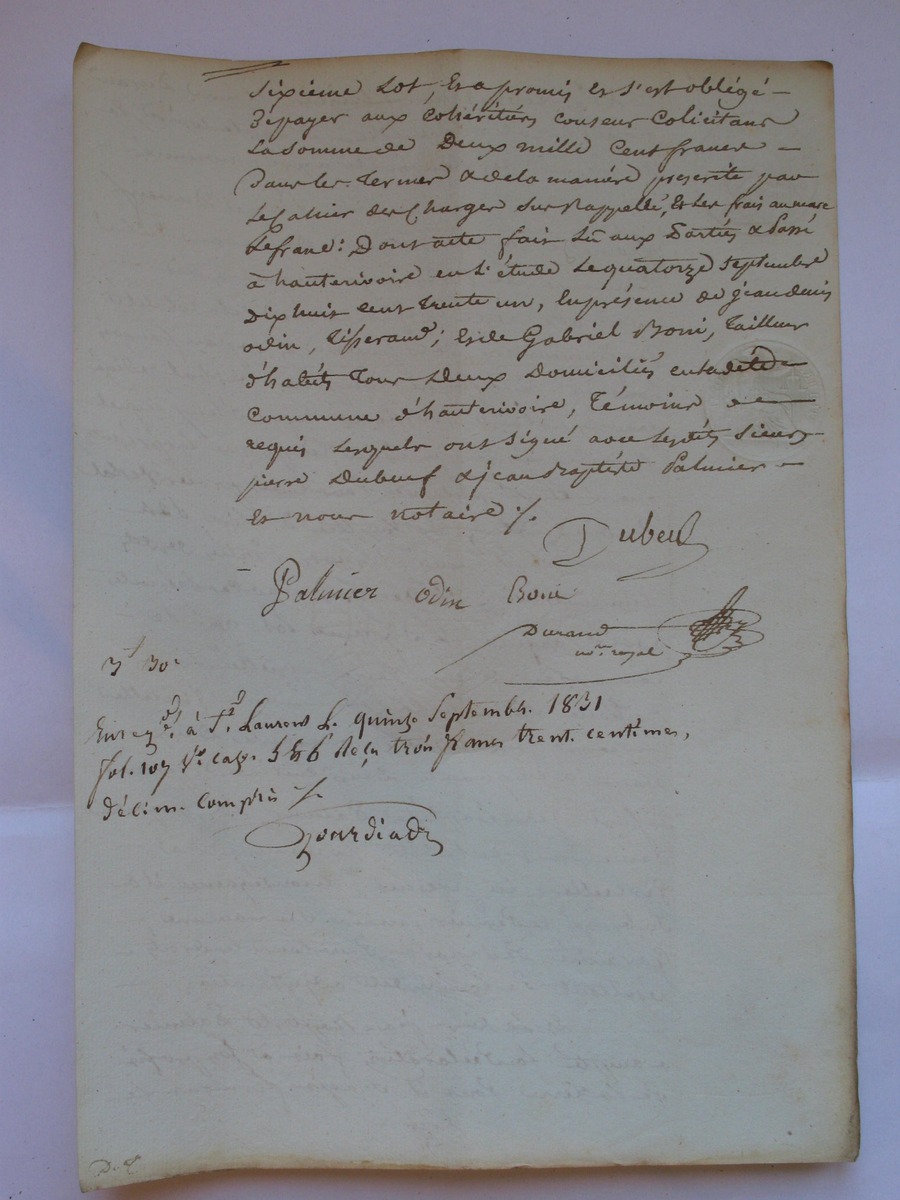 sixième Lot, Et a promis et s'est obligé –
de payer aux cohéritiers couseur Colicitans
La somme de Deux mille Cent francs –
Dans les Termes & de la manière prescrite par
Le Cahier des Charges sus Rappellé, Et Les frais au marc
Le franc: Dont acte fait Lû aux Parties & Passé
à hauterivoire en L'étude Le quatorze Septembre
dix huit cent trente un, En présence de jean denis
odin, Tisserand; Et de Gabriel Boni, Tailleur
d'habits Tous Deux Domiciliés en La dite
Commune d'hauterivoire, Témoins
requis Lesquels ont Signé avec Lesdits Sieurs
pierre Dubeuf & jean Baptiste Palmier –
Et nous notaire ./.
Dubeuf
Palmier odin Boni
Durand
no.re royal
3f 30c
Enreg.é à St. Laurent Le quinze Septembre 1831
fol. 107 v.o case 5 et 6 Reçu trois francs trente centimes,
décime compris ./.